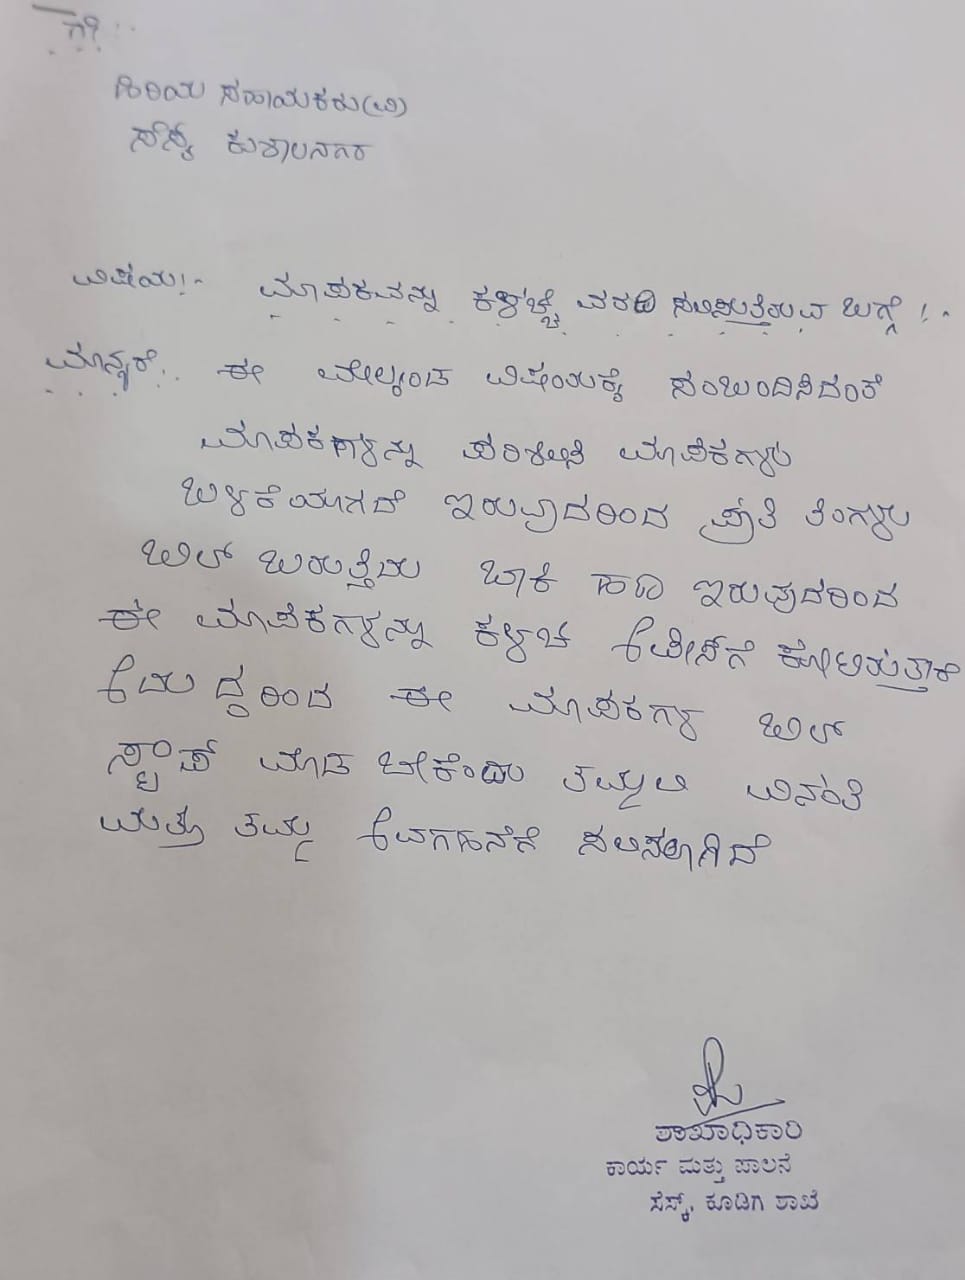 ಗೆ:
ಹಿರಿಯ ಸಹಾಯಕರು(ವಿ)
ಸೆಸ್ಕ್ ಕುಶಾಲನಗರ
ವಿಷಯ:- ಮಾಪಕವನ್ನು ಕಳಚ್ಚಿ ವರದಿ ಸಲಿಸುತ್ತಿರುವ ಬಗ್ಗೆ :-
ಮಾನ್ಯರೆ.. ಈ ಮೇಲ್ಕಂಡ ವಿಷಯಕ್ಕೆ ಸಂಬಂದಿಸಿದಂತೆ
ಮಾಪಕಗಳನ್ನು ಪರಿಶೀಲಿಸಿ ಮಾಪಕಗಳು
ಬಳಕೆಯಾಗದೆ ಇರುವುದರಿಂದ ಪ್ರತಿ ತಿಂಗಳು
ಬಿಲ್ ಬರುತ್ತಿದ್ದು ಬಾಕಿ ಹಣ ಇರುವುದರಿಂದ
ಈ ಮಾಪಕಗಳನ್ನು ಕಳಚಿ ಆಪೀಸ್‌ಗೆ ಕೋಡುತ್ತಾರೆ
ಆದು ದ್ದರಿಂದ ಈ ಮಾಪಕಗಳ ಬಿಲ್
ಸ್ಟಾಪ್ ಮಾಡ ಬೇಕೆಂದು ತಮ್ಮಲಿ ವಿನಂತಿ
ಮತ್ತು ತಮ್ಮ ಅವಗಾಹನೆಗೆ ಸಲಿಸಲಾಗಿದೆ
ಶಾಖಾಧಿಕಾರಿ
ಕಾರ್ಯ ಮತ್ತು ಪಾಲನೆ
ಸೆಸ್ಕ್, ಕೂಡಿಗಿ ಶಾಖೆ